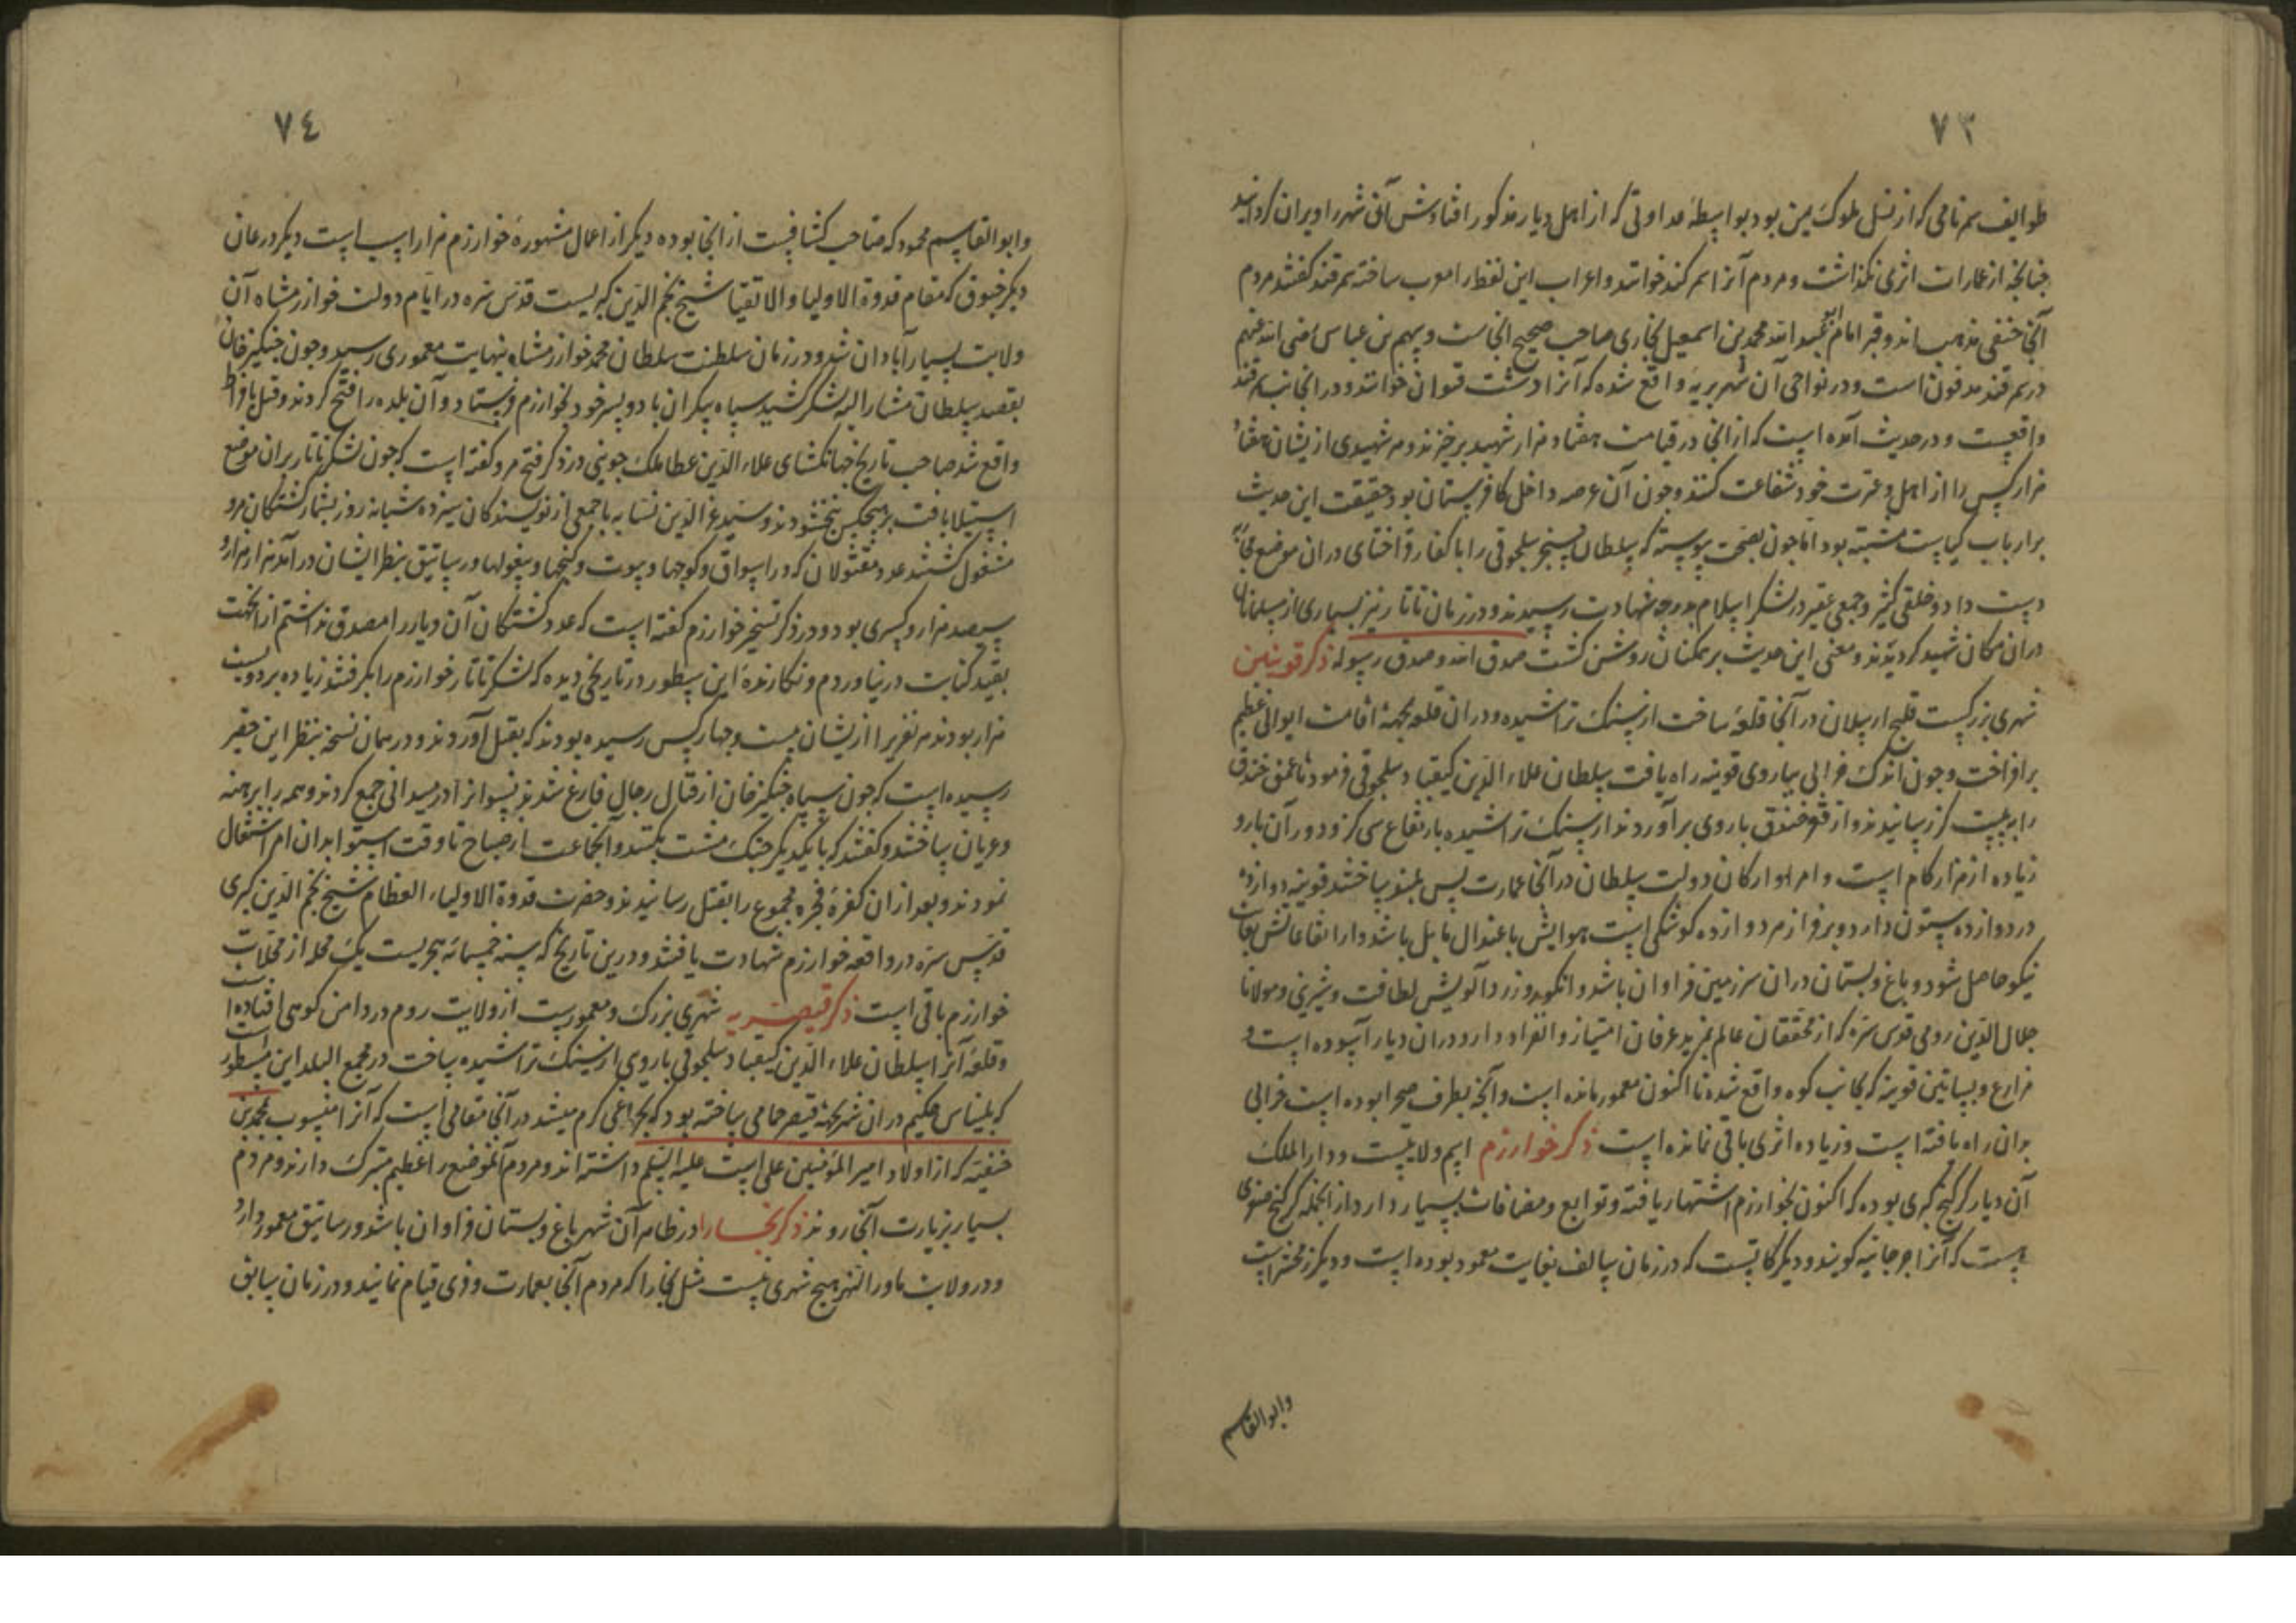 ٧٣
طوایف سم نامی که از نسل ملوک یمن بود بواسطهٔ عداوتی که از اهل دیار مذکور افتادش آن شهر را ویران کردانید
چنانچه از عمارات اثری نکذاشت و مردم آنرا سمرکند خواندند و اعراب این لفظ را معرب ساخته سمرقند کفتند مردم
آنجا حنفی مذهب اند و قبر امام ابو عبد الله محمد بن اسمعیل بخاری صاحب صحیح انجاست و بهم بن عباس رضی الله عنهم
در سمرقند مدفون است و در نواحی آن شهر بریه واقع شده که آنرا دشت قتوان خوانند و در انجانب سمرقند
واقعست و در حدیث آمده است که از انجا در قیامت هفتاد هزار شهید برخیزند و هر شهیدی ازیشان هفتاد
هزار کس را از اهل و عترت خود شفاعت کنند و چون آن عرصه داخل کافرستان بود حقیقت این حدیث
بر ارباب کیاست مشتبه بود اما چون بصحت پیوسته که سلطان سنجر سلجوقی را با کفار قراختای دران موضع محاربه
دست داد و خلقی کثیر و جمعی غفیر در لشکر اسلام بدرجه شهادت رسیدند و در زمان تاتار نیز بسیاری از مسلمانان
دران مکان شهید کردیدند و معنی این حدیث بر همکنان روشن کشت صدق الله و صدق رسوله ذکر قونین
شهری بزرکست قلیج ارسلان در آنجا قلعهٔ ساخت از سنک تراشیده و دران قلعه بجهة اقامت ایوانی عظیم
برافراخت و چون اندک خرابی بباروی قونیه راه یافت سلطان علاء الدین کیقباد سلجوقی فرمود تا عمق خندق
را به بیست کز رسانیدند و از قعر خندق باروی برآوردند از سنک تراشیده بارتفاع سی کز و دور آن بارو
زیاده از هزار کام است و امرا و ارکان دولت سلطان در آنجا عمارت بس بلند ساختند قونیه دوازده
در دوازده ستون دارد و بر فراز هر دو ازده کوشکی است هوایش باعتدال مایل باشد و ارتفاعاتش بغایت
نیکو حاصل شود و باغ و بستان دران سرزمین فراوان باشد و انکور و زردآلویش لطافت و شیرینی و مولانا
جلال الدین رومی قدس سره که از محققان عالم بمزید عرفان امتیاز و انفراد دارد دران دیار آسوده است و
مزارع و بساتین قونیه که بجانب کوه واقع شده تا اکنون معمور مانده است و آنچه بطرف صحرا بوده است خرابی
بدان راه یافته است و زیاده اثری باقی نمانده است ذکر خوارزم اسم ولایتیست و دار الملک
آن دیار کرکنج کبری بوده که اکنون بخوارزم اشتهار یافته و توابع و مضافات بسیار دارد از انجمله کرکنج صغری
است که آنرا جرجانیه کویند و دیکر کاتست که در زمان سالف بغایت معمود بوده است و دیکر زمخشرست
وابو القاسم
٧٤
وابو القاسم محمود که صاحب کشافست از انجا بوده دیکر از اعمال مشهورهٔ خوارزم هزاراسب است دیکر درعان
دیکر خیوق که مقام قدوة الاولیا و الاتقیا شیخ نجم الدین کبریست قدس سره در ایام دولت خوارزمشاه آن
ولایت بسیار آبادان شد و در زمان سلطنت سلطان محمد خوارزمشاه نهایت معموری رسید و چون جنکیزخان
بقصد سلطان مشار الیه لشکر کشید سپاه بیکران با دو پسر خود بخوارزم فرستاد و آن بلده را فتح کردند و قتل بافراط
واقع شد صاحب تاریخ جهانکشای علاء الدین عطا ملک جوینی در ذکر فتح مرو کفته است که چون لشکر تاتار بران موضع
استیلا یافت بر هیچکس نبخشودند و سید عز الدین نسابه با جمعی از نویسندکان سیزده شبانه روز بشمار کشتکان مرو
مشغول کشتند عدد مقتولان که در اسواق و کوچها و بیوت و کنجها و بیغولها و رساتیق بنظر ایشان در آمد هزار هزار و
سیصد هزار و کسری بود و در ذکر تسخیر خوارزم کفته است که عدد کشتکان آن دیار را مصدق نداشتم از انجهت
بقید کتابت درنیاوردم و نکارندهٔ این سطور در تاریخی دیده که لشکر تاتار خوارزم را بکرفتند زیاده بر دویست
هزار بودند هر نفری را ازیشان بیست و چهار کس رسیده بودند که بقتل آوردند و در همان نسخه بنظر این حقیر
رسیده است که چون سپاه جنکیزخان از قتال رجال فارغ شدند نسوانرا در میدانی جمع کردند و همه را برهنه
و عریان ساختند و کفتند که با یکدیکر جنک مشت بکنند و آنجماعت از صباح تا وقت استوا بدان امر اشتغال
نمودند و بعد از ان کفرهٔ فجره مجموع را بقتل رسانیدند و حضرت قدوة الاولیاء العظام شیخ نجم الدین کبری
قدس سره در واقعه خوارزم شهادت یافتند و درین تاریخ که سنه خمسمائه هجریست یک محله از محلات
خوارزم باقی است ذکر قیصریه شهری بزرک و معمورست از ولایت روم در دامن کوهی افتاده است
و قلعهٔ آنرا سلطان علاء الدین کیقباد سلجوقی باروی از سنک تراشیده ساخت در مجمع البلد این مسطور است
که بلیناس حکیم دران شهر بجهة قیصر حمامی ساخته بود که بچراغی کرم میشد در آنجا مقامی است که آنرا منسوب بمحمد بن
حنفیه که از اولاد امیر المؤمنین علی است علیه السلم داشته اند و مردم آنموضع را عظیم متبرک دارند و مردم
بسیار بزیارت آنجا روند ذکر بخارا در ظاهر آن شهر باغ و بستان فراوان باشد و رساتیق معمور دارد
و در ولایت ماوراء النهر هیچ شهری نیست مثل بخارا که مردم آنجا بعمارت و ذی قیام نمایند و در زمان سابق